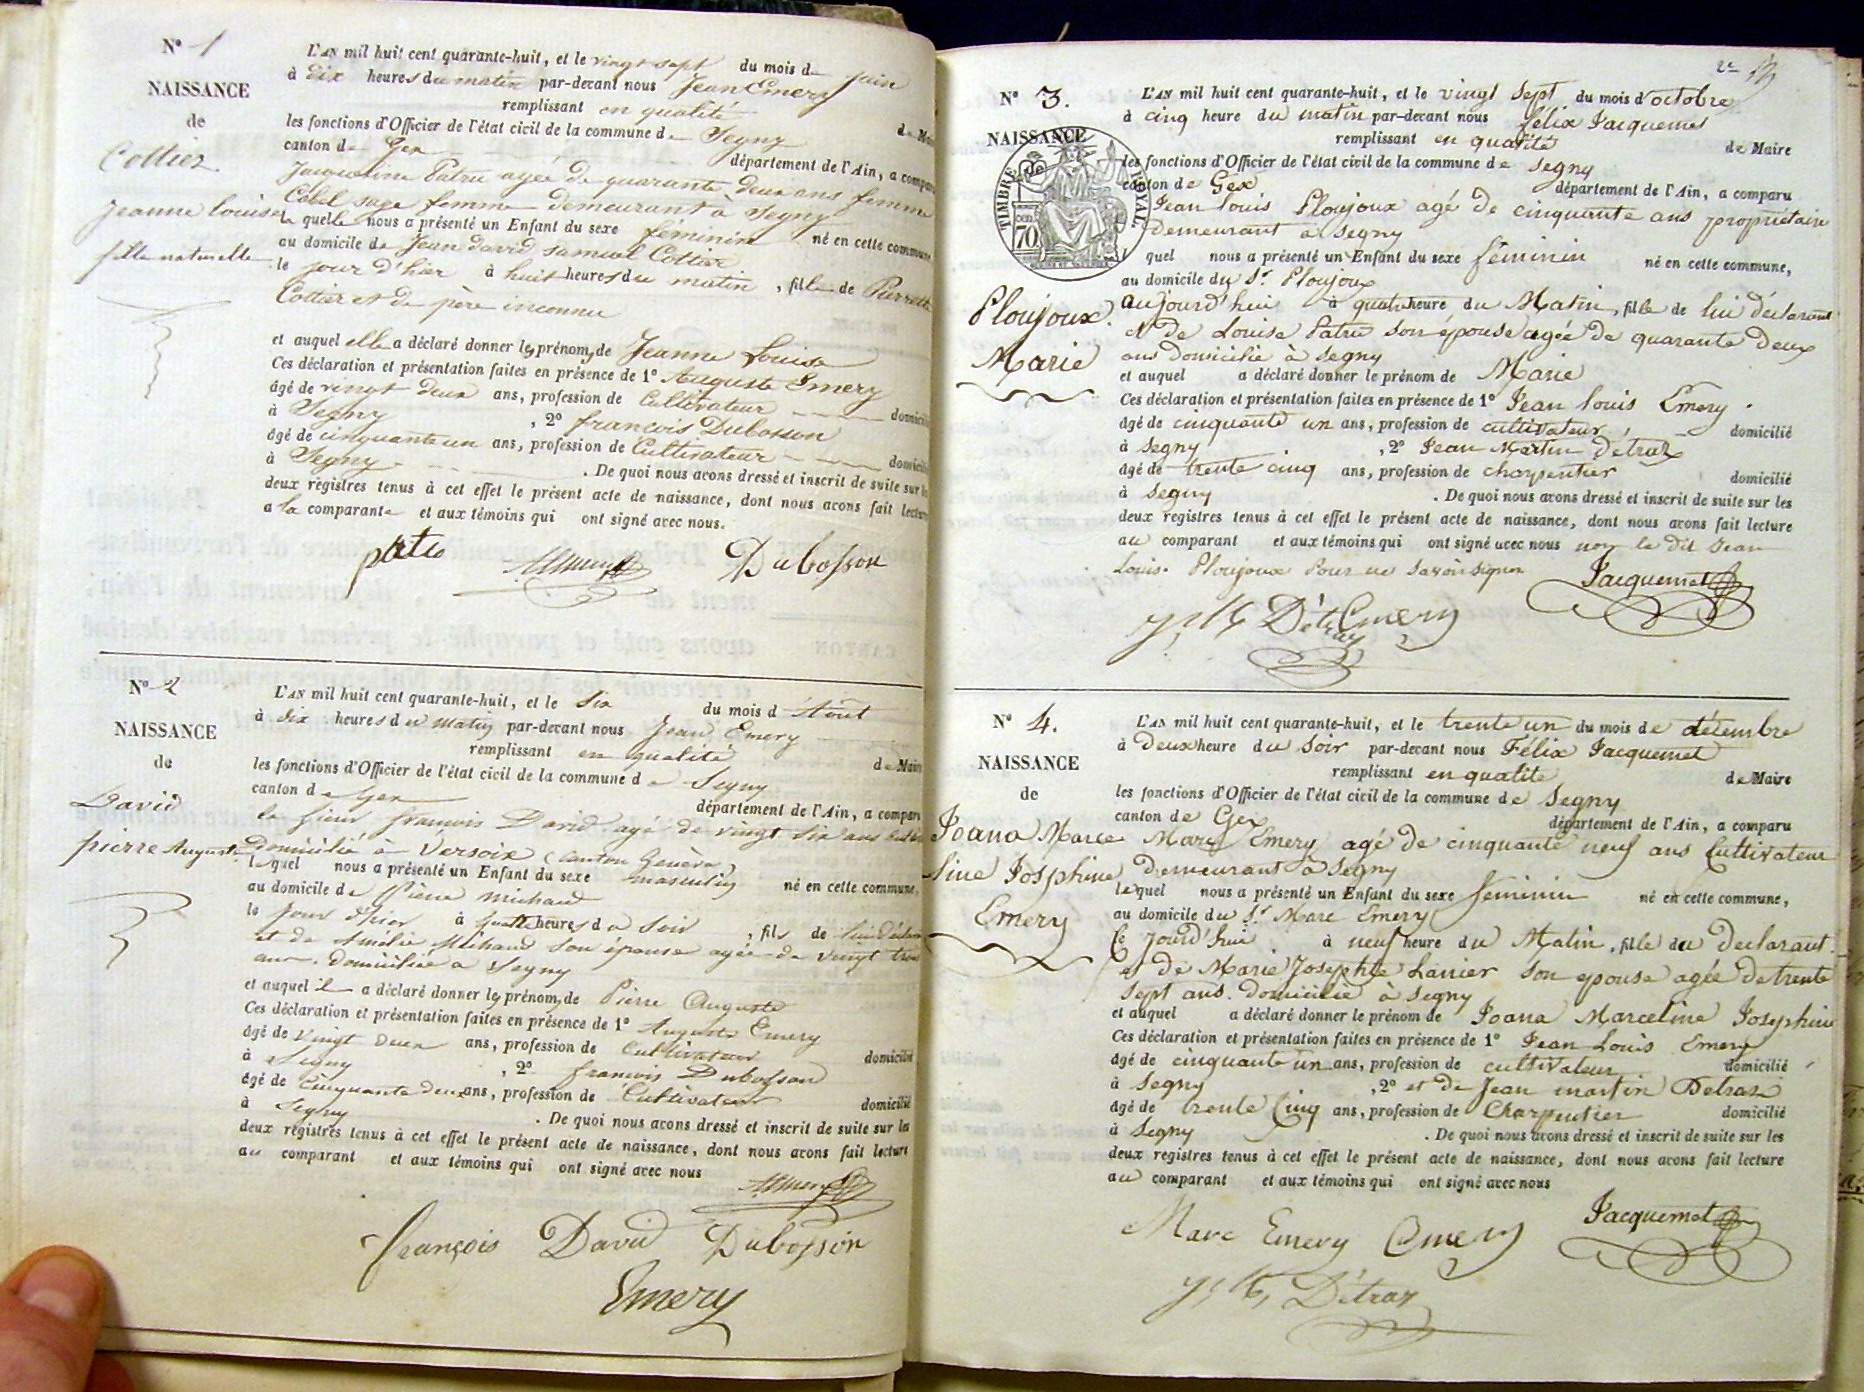 N° 1
NAISSANCE
de
Cottier
Jeanne Louise
fille naturelle
L'AN mil huit cent quarante-huit, et le vingt sept du mois de juin
à dix heures du matin par-devant nous Jean Emery
remplissant en qualité de Maire
les fonctions d'Officier de l'état civil de la commune de Segny
canton de Gex département de l'Ain, a comparu
Jacqueline Patru agée de quarante deux ans femme
sage femme demeurant à Segny
la quelle nous a présenté un Enfant du sexe féminin né en cette commune,
au domicile de Jean David Samuel Cottier
le jour d'hier à huit heures du matin, fille de Pierrette
Cottier et de père inconnu
et auquel elle a déclaré donner les prénoms de Jeanne Louise
Ces déclaration et présentation faites en présence de 1° Auguste Emery
âgé de vingt deux ans, profession de Cultivateur domicilié
à Segny, 2° francois Dubosson
âgé de cinquante un ans, profession de Cultivateur domicilié
à Segny. De quoi nous avons dressé et inscrit de suite sur les
deux registres tenus à cet effet le présent acte de naissance, dont nous avons fait lecture
a la comparante et aux témoins qui ont signé avec nous.
Dubosson
N° 2
NAISSANCE
de
David
pierre Auguste
L'AN mil huit cent quarante-huit, et le six du mois d'Aout
à dix heures du matin par-devant nous Jean Emery
remplissant en qualité de Maire
les fonctions d'Officier de l'état civil de la commune de Segny
canton de Gex département de l'Ain, a comparu
le sieur francois David agé de vingt six ans
domicilié à Versoix (canton Genève)
lequel nous a présenté un Enfant du sexe masculin né en cette commune,
au domicile de Pierre Michaud
le jour d'hier à quatre heures du soir, fils de lui déclarant
et de Amélie Michaud son épouse agée de vingt trois
ans domiciliée a Segny
et auquel il a déclaré donner les prénoms de Pierre Auguste
Ces déclaration et présentation faites en présence de 1° Auguste Emery
âgé de vingt deux ans, profession de Cultivateur domicilié
à Segny, 2° francois Dubosson
âgé de Cinquante deux ans, profession de Cultivateur domicilié
à Segny. De quoi nous avons dressé et inscrit de suite sur les
deux registres tenus à cet effet le présent acte de naissance, dont nous avons fait lecture
au comparant et aux témoins qui ont signé avec nous
françois David Dubosson
Emery
N° 3.
NAISSANCE
TIMBRE ROYAL
70
Ploujoux.
Marie
L'AN mil huit cent quarante-huit, et le vingt sept du mois d'octobre
à cinq heure du matin par-devant nous félix Jacquemet
remplissant en qualité de Maire
les fonctions d'Officier de l'état civil de la commune de Segny
canton de Gex département de l'Ain, a comparu
Jean Louis Ploujoux agé de cinquante ans propriétaire
demeurant à Segny
quel nous a présenté un Enfant du sexe féminin né en cette commune,
au domicile du Sr Ploujoux
aujourd'hui à quatre heure du Matin, fille de lui déclarant
et de Louise Patru son épouse agée de quarante deux
ans domicilié à Segny
et auquel a déclaré donner le prénom de Marie
Ces déclaration et présentation faites en présence de 1° Jean Louis Emery.
âgé de cinquante un ans, profession de cultivateur domicilié
à Segny, 2° Jean Martin Détraz
âgé de trente cinq ans, profession de charpentier domicilié
à Segny. De quoi nous avons dressé et inscrit de suite sur les
deux registres tenus à cet effet le présent acte de naissance, dont nous avons fait lecture
au comparant et aux témoins qui ont signé avec nous non le dit Jean
Louis Ploujoux Pour ne savoir signer Jacquemet
Détraz Emery
N° 4.
NAISSANCE
de
Joana Marce
line Josphine
Emery
L'AN mil huit cent quarante-huit, et le trente un du mois de décembre
à deux heure du soir par-devant nous Félix Jacquemet
remplissant en qualité de Maire
les fonctions d'Officier de l'état civil de la commune de Segny
canton de Gex département de l'Ain, a comparu
Marc Emery agé de cinquante neuf ans Cultivateur
demeurant à Segny
lequel nous a présenté un Enfant du sexe féminin né en cette commune,
au domicile du Sr Marc Emery
Ce jourd'hui à neuf heure du Matin, fille du Declarant
et de Marie Josephte Lanier son epouse agée de trente
sept ans. domicilié à Segny
et auquel a déclaré donner le prénom de Joana Marceline Josephine
Ces déclaration et présentation faites en présence de 1° Jean Louis Emery
âgé de cinquante un ans, profession de cultivateur domicilié
à Segny, 2° et de Jean martin Detraz
âgé de trente Cinq ans, profession de Charpentier domicilié
à Segny. De quoi nous avons dressé et inscrit de suite sur les
deux registres tenus à cet effet le présent acte de naissance, dont nous avons fait lecture
au comparant et aux témoins qui ont signé avec nous
Marc Emery Emery Jacquemet
Détraz